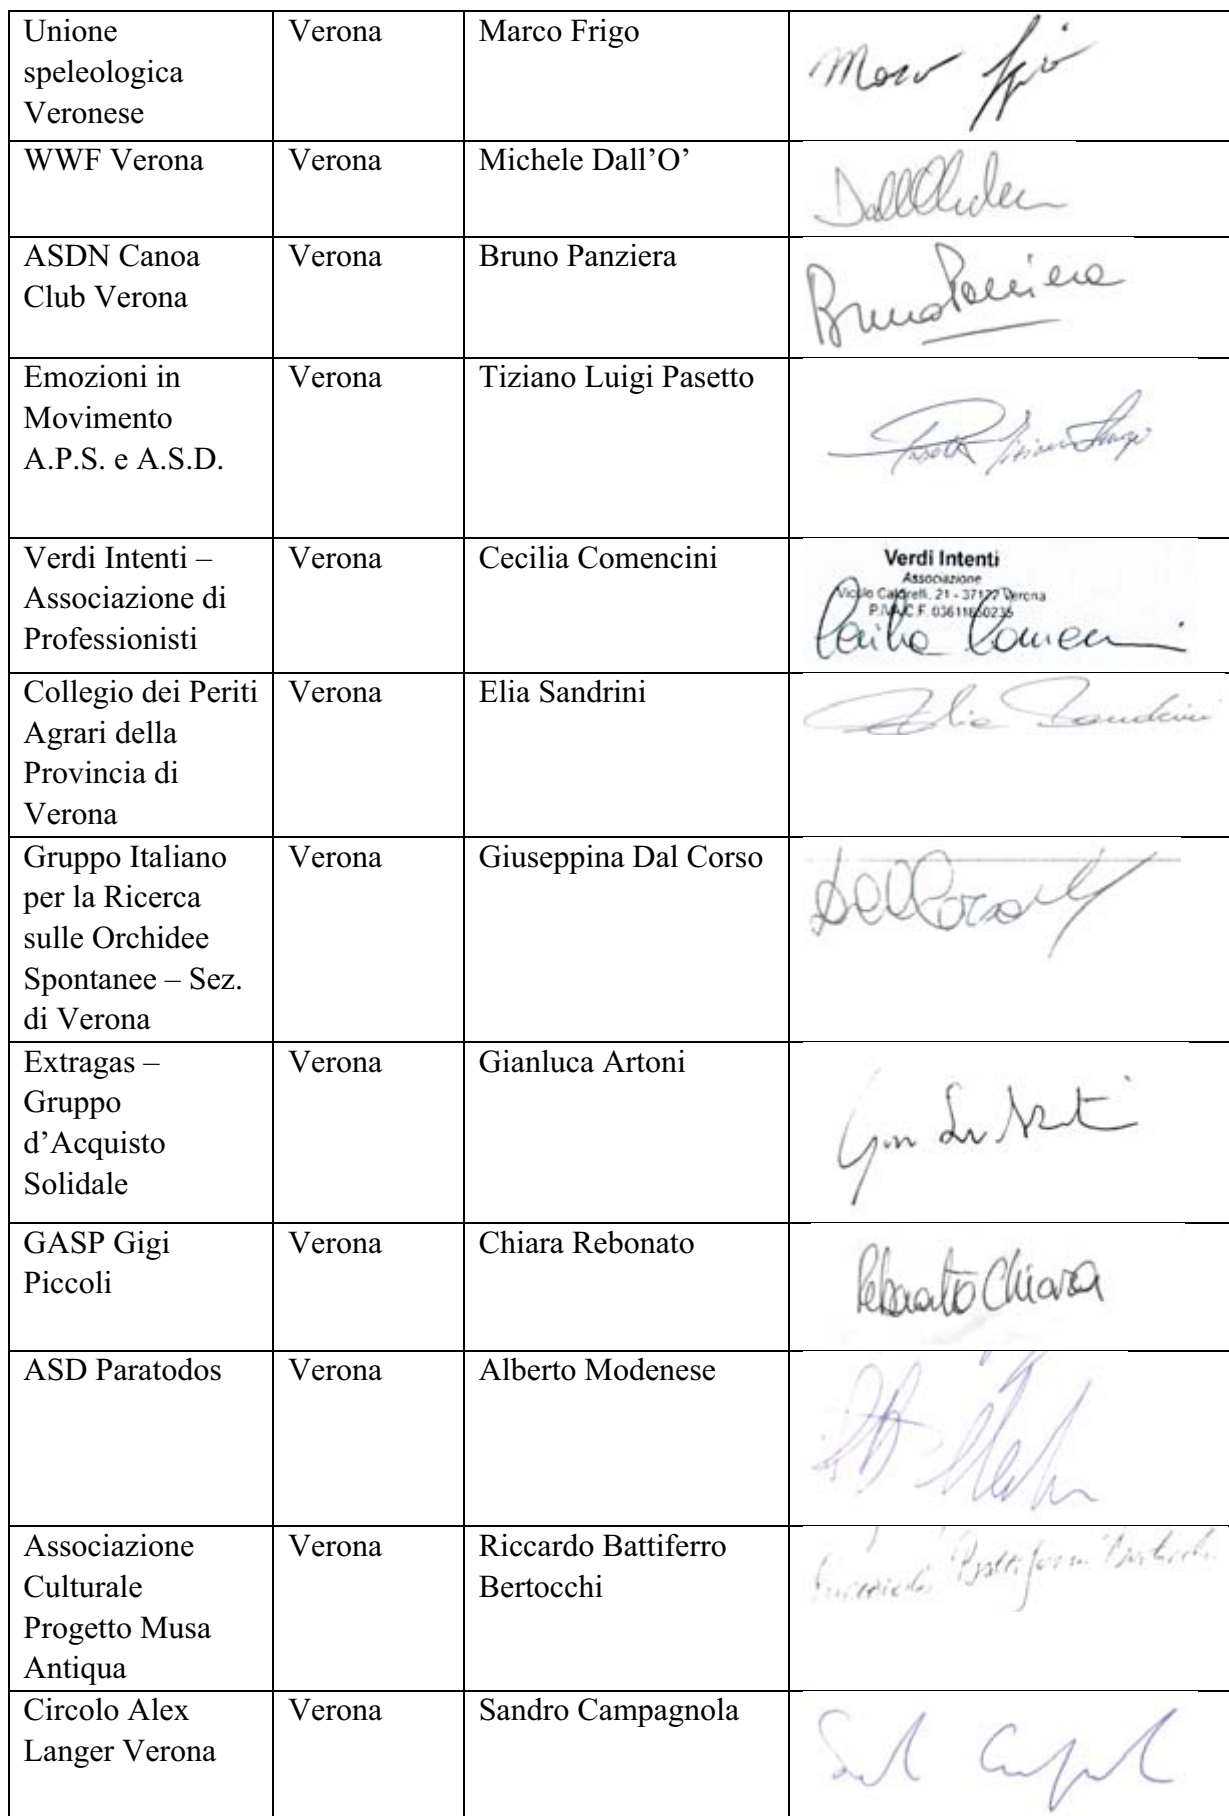 Unione
speleologica
Veronese
Verona
Marco Frigo
WWF Verona
Verona
Michele Dall’O’
ASDN Canoa
Club Verona
Verona
Bruno Panziera
Bruno Panziera
Emozioni in
Movimento
A.P.S. e A.S.D.
Verona
Tiziano Luigi Pasetto
Verdi Intenti –
Associazione di
Professionisti
Verona
Cecilia Comencini
Verdi Intenti
Associazione
21 - 37122 Verona
Collegio dei Periti
Agrari della
Provincia di
Verona
Verona
Elia Sandrini
Elia Sandrini
Gruppo Italiano
per la Ricerca
sulle Orchidee
Spontanee – Sez.
di Verona
Verona
Giuseppina Dal Corso
Extragas –
Gruppo
d’Acquisto
Solidale
Verona
Gianluca Artoni
GASP Gigi
Piccoli
Verona
Chiara Rebonato
Rebonato Chiara
ASD Paratodos
Verona
Alberto Modenese
Associazione
Culturale
Progetto Musa
Antiqua
Verona
Riccardo Battiferro
Bertocchi
Circolo Alex
Langer Verona
Verona
Sandro Campagnola